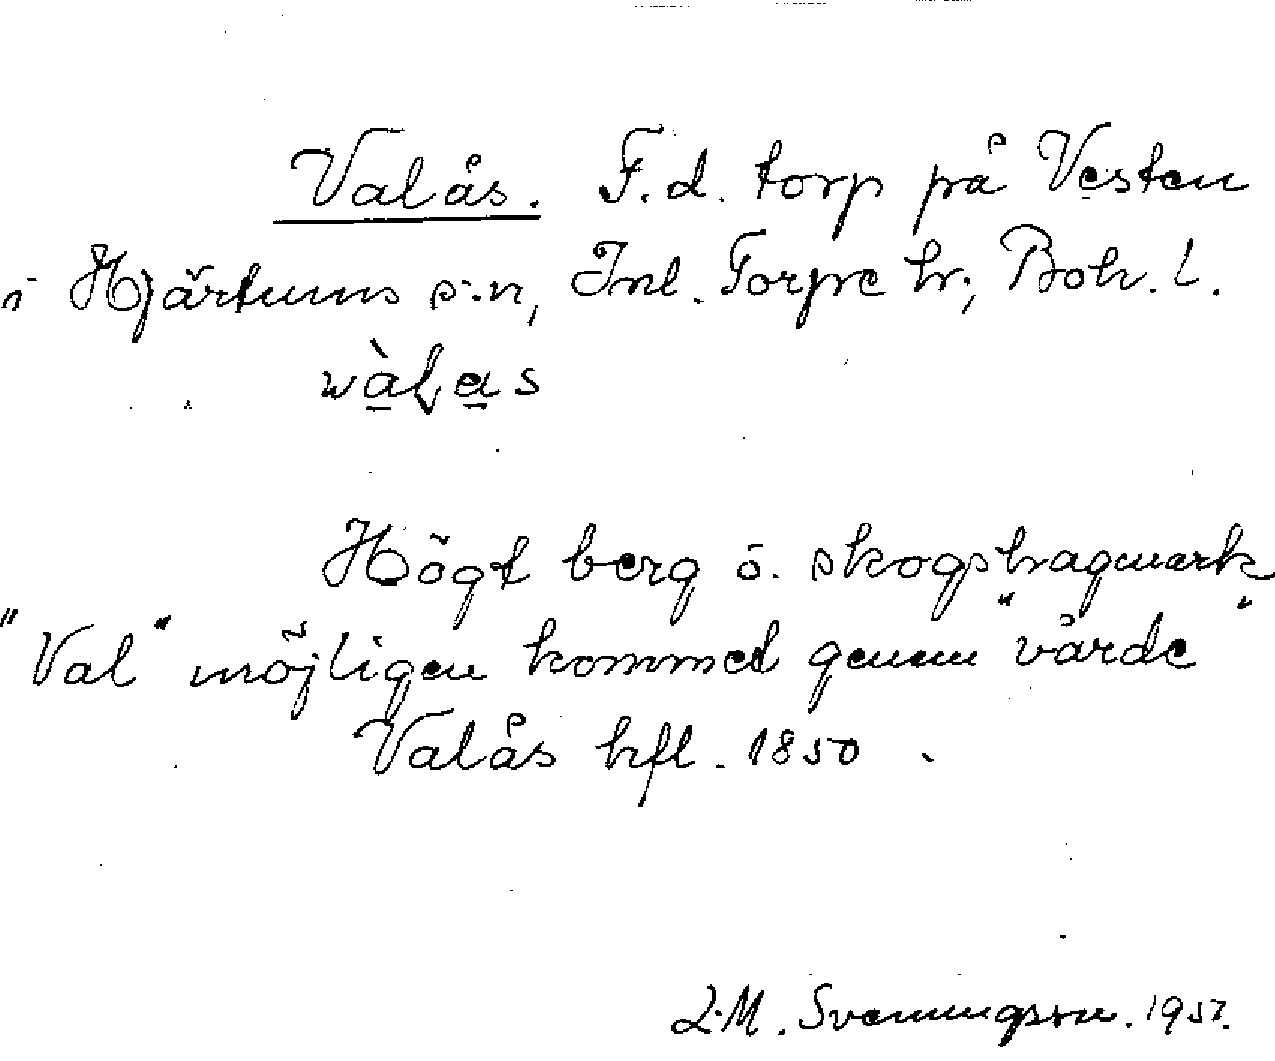 Valås. F.d. torp på Vesten
i Hjärtums s:n, Inl. Torpe hr, Boh. l.
wàḷas
Högt berg o. skogshagmark
"Val" möjligen kommed genom "vårde"
Valås hfl. 1850.
L.M. Svenningsson. 1957.